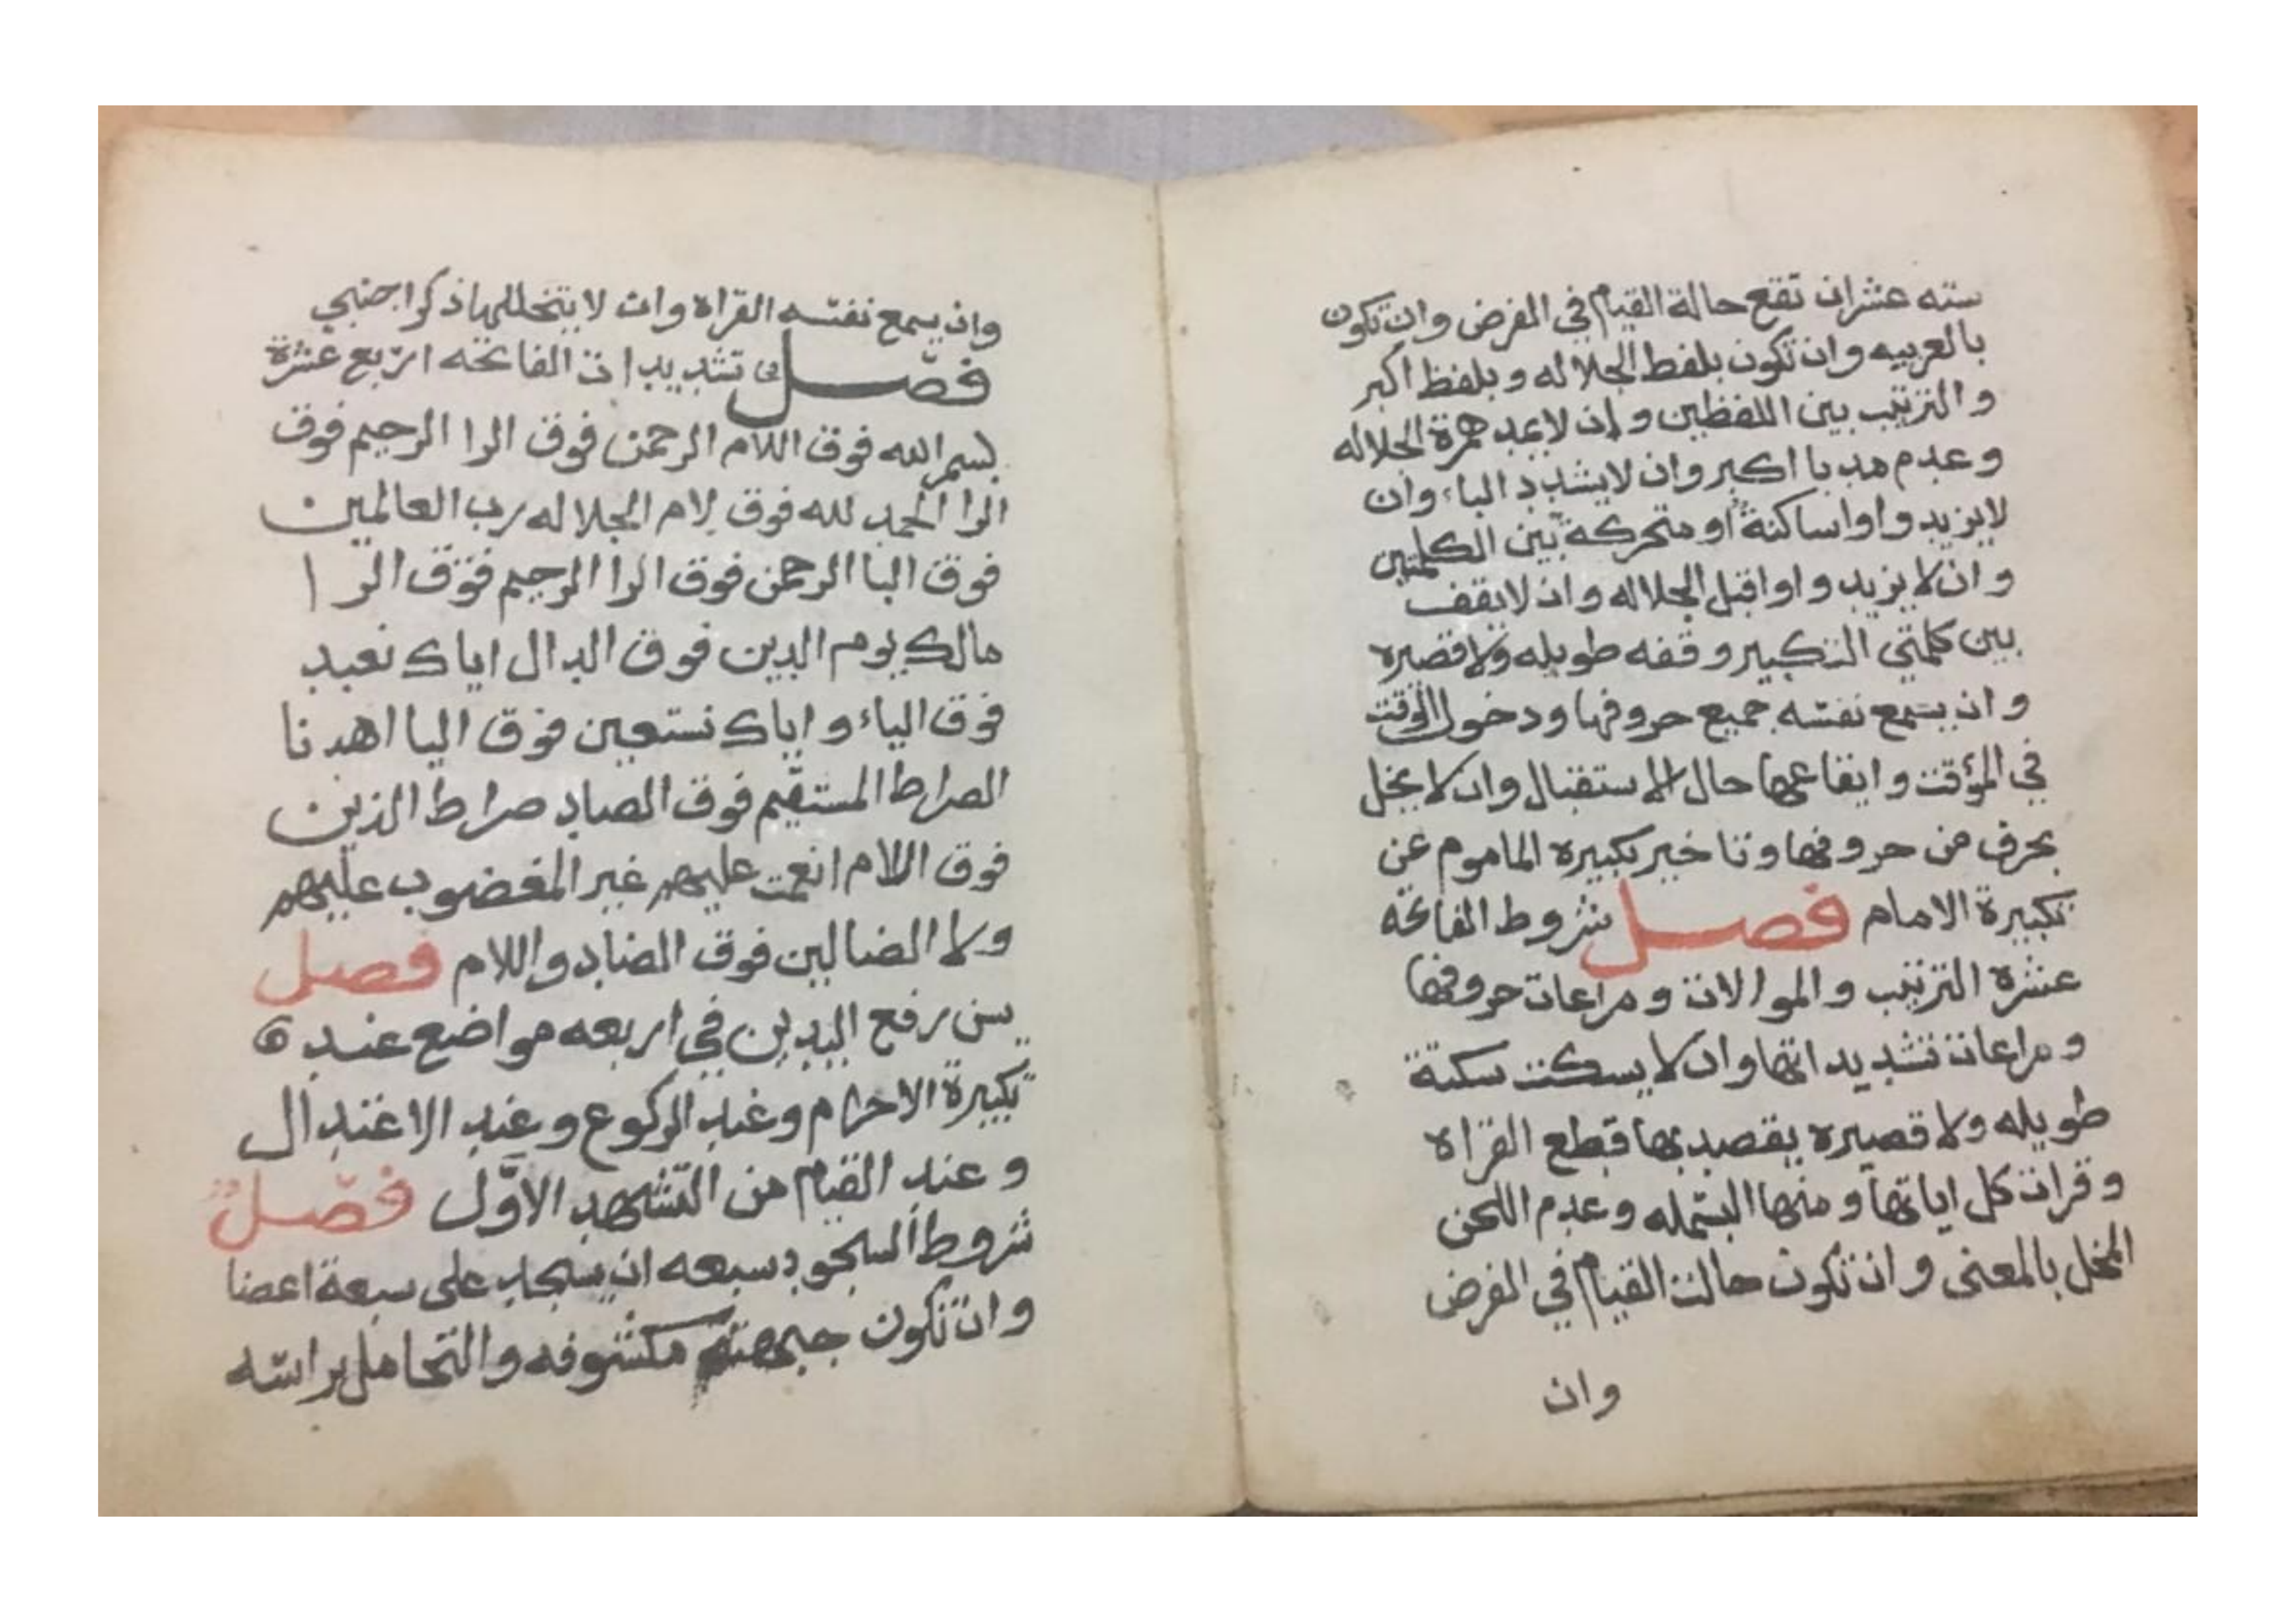 سته عشران تقع حالة القيام في الفرض وان تكون
بالعربيه وان تكون بلفظ الجلاله و بلفظ اكبر
و الترتيب بين اللفظين و ان لا يمد همزة الجلاله
و عدم مد با اكبر وان لا يشدد الباء وان
لا يزيد واوا ساكنة او متحركة بين الكلمتين
و ان لا يزيد و اوا قبل الجلاله و ان لا يقف
بين كلمتي التكبير وقفه طويله ولا قصيره
و ان يسمع نفسه جميع حروفها ودخول الوقت
في المؤقت و ايقاعها حال الاستقبال وان لا يخل
بحرف من حروفها و تاخير تكبيره الماموم عن
تكبيرة الامام فصل شروط الفاتحه
عشره الترتيب و الموالات و مراعات حروفها
و مراعات تشديداتها وان لا يسكت سكتة
طويله ولا قصيره يقصد بها قطع القراه
و قرات كل اياتها و منها البسمله و عدم اللحن
المخل بالمعنى و ان تكون حالت القيام في الفرض
وان
وان يسمع نفسه القراه وان لا يتخللها ذكر اجنبي
فصل في تشديدات الفاتحه اربع عشرة
بسم الله فوق اللام الرحمن فوق الرا الرحيم فوق
الرا الحمد لله فوق لام الجلاله رب العالمين
فوق البا الرحمن فوق الرا الرحيم فوق الرا
مالك يوم الدين فوق الدال اياك نعبد
فوق الياء و اياك نستعين فوق اليا اهدنا
الصراط المستقيم فوق الصاد صراط الذين
فوق اللام انعمت عليهم غير المغضوب عليهم
ولا الضالين فوق الضاد واللام فصل
يسن رفع اليدين في اربعه مواضع عند
تكبيرة الاحرام وعند الركوع و عند الاعتدال
و عند القيام من التشهد الاول فصل
شروط السجود سبعه ان يسجد على سبعة اعضا
و ان تكون جبهته مكشوفه والتحامل براسه